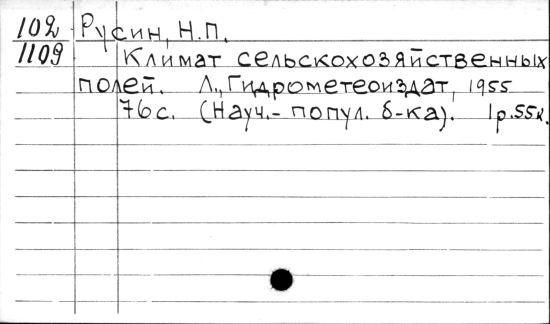 102 Русин, Н.П.
1109 Климат сельскохозяйственных
полей. Л., Гидрометеоиздат, 1955
76с. (Науч.- попул. б-ка). 1р.55к.